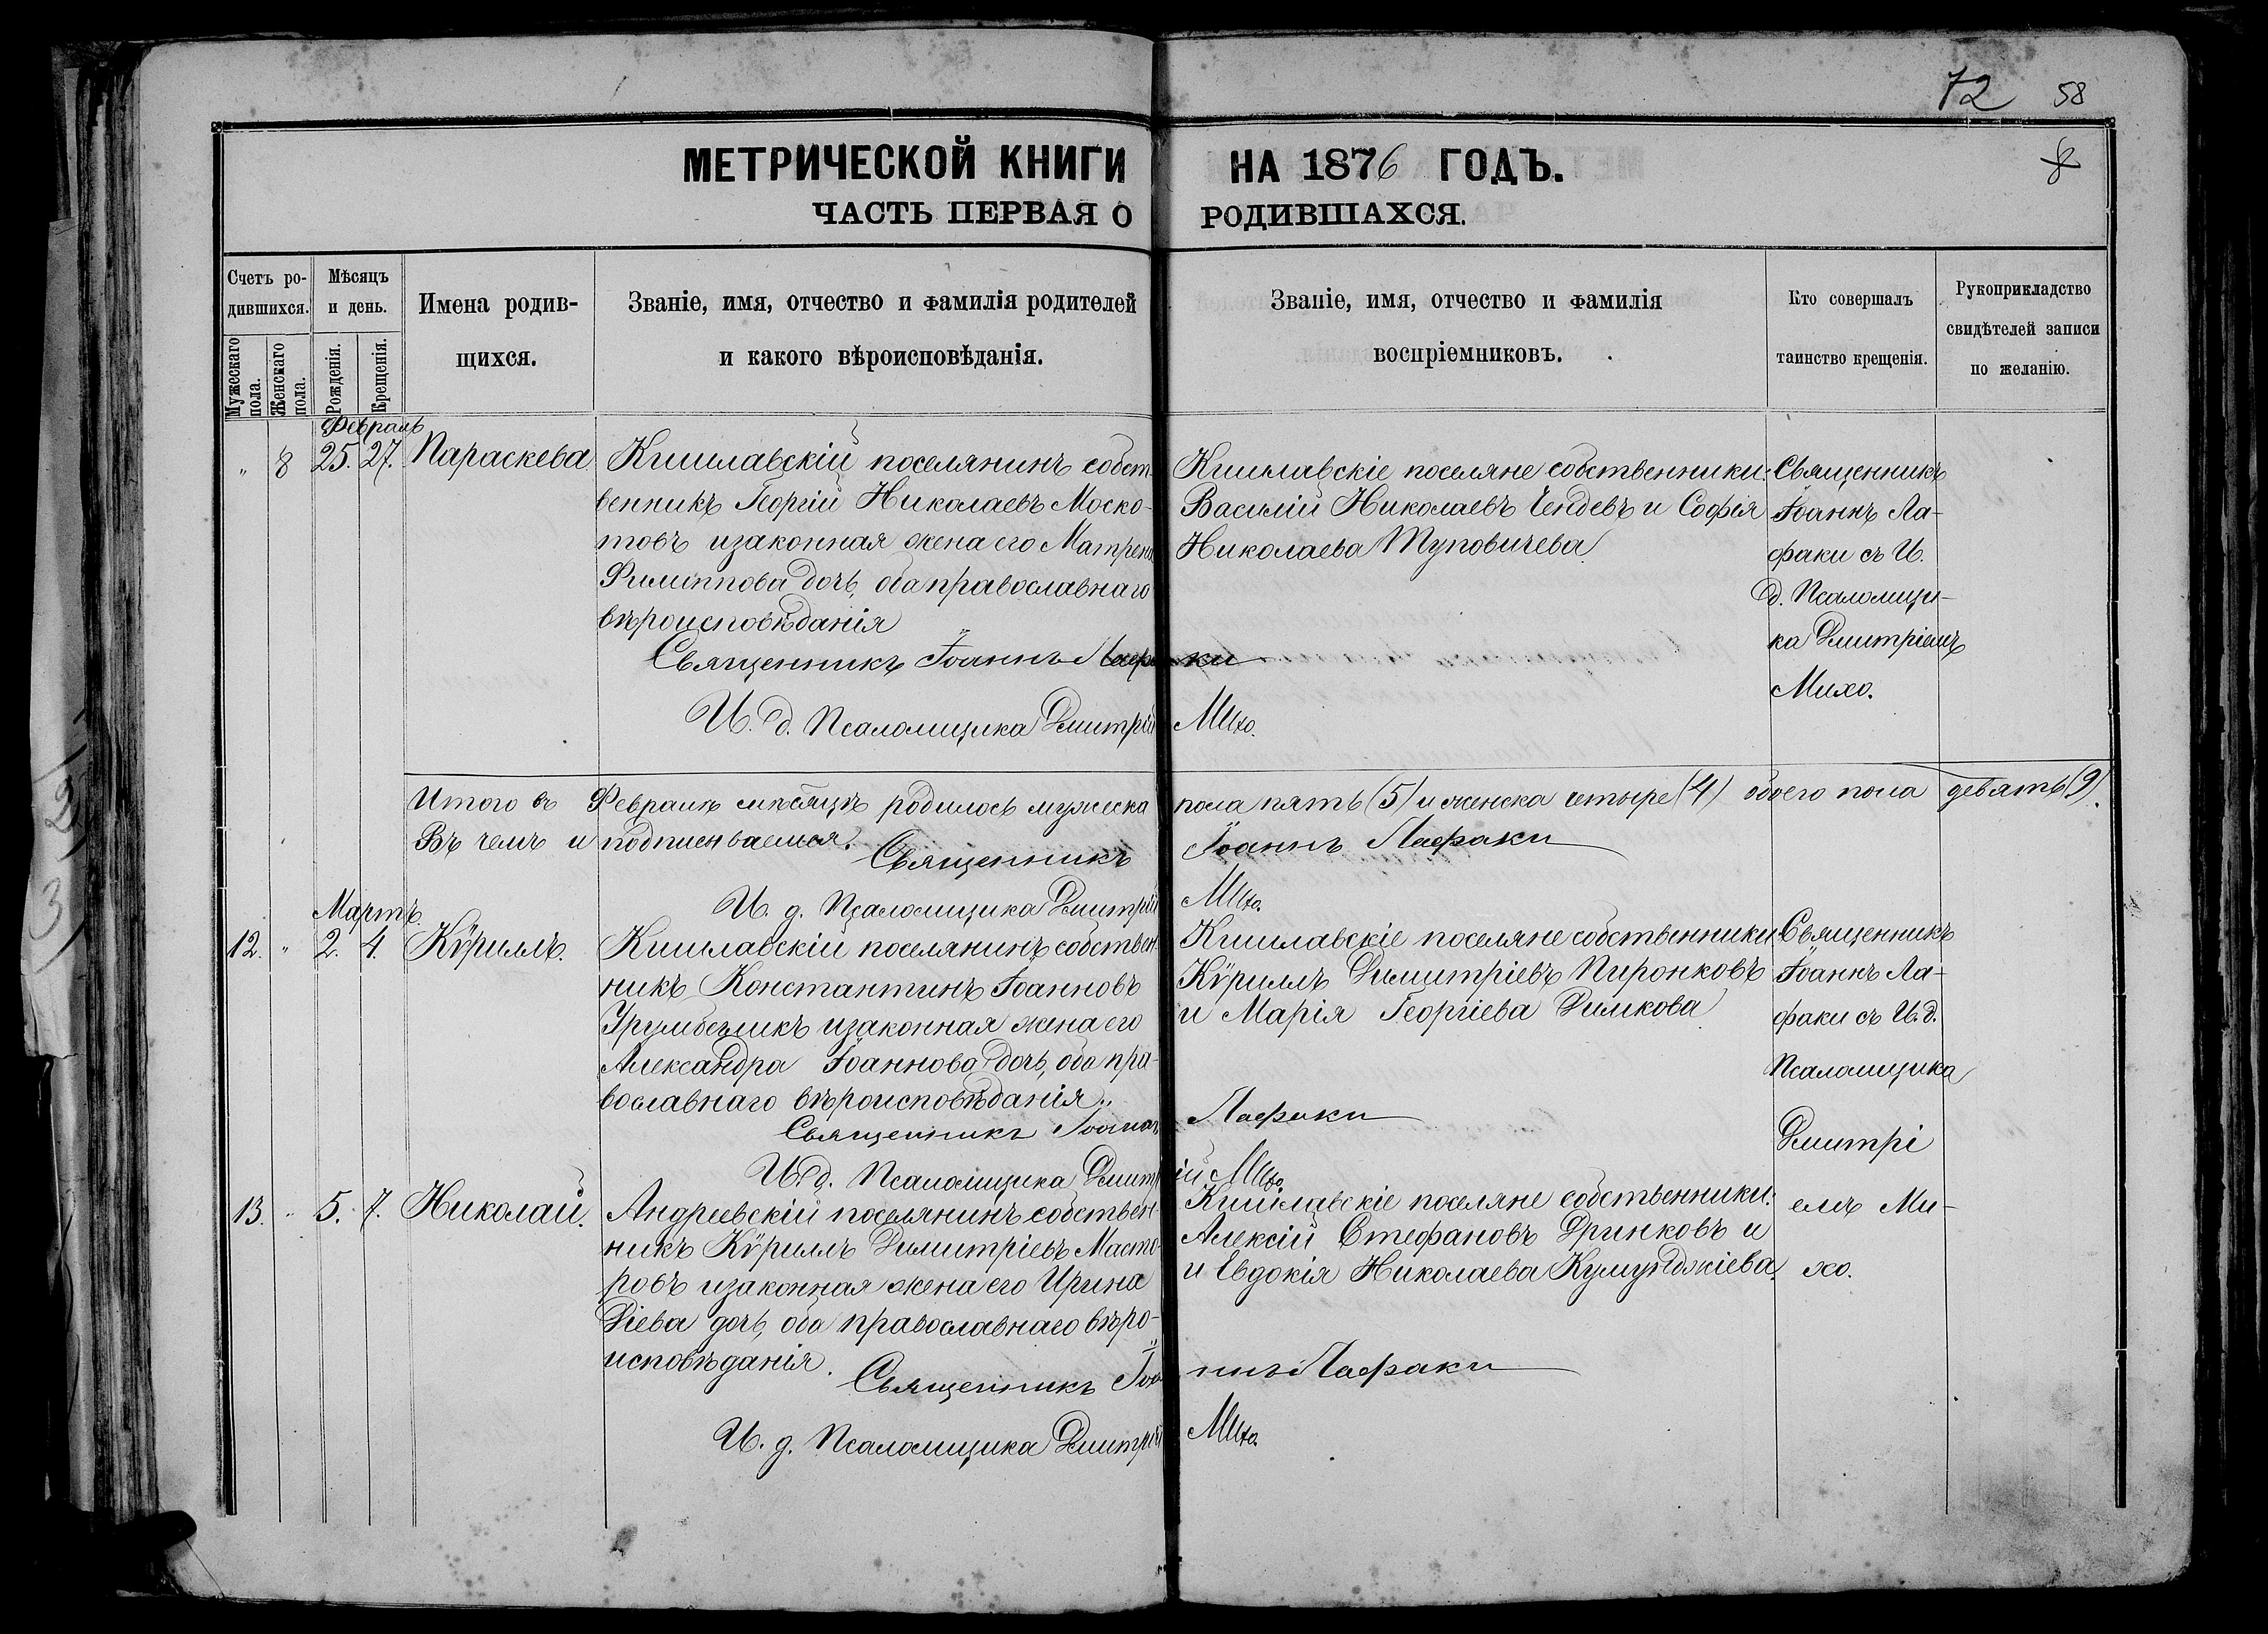 72 58
8
МЕТРИЧЕСКОЙ КНИГИ НА 1876 ГОДЪ.
ЧАСТЬ ПЕРВАЯ О РОДИВШАХСЯ.
Счетъ ро-
дившихся.
Мужескаго пола.
Женскаго пола.
Мѣсяцъ
и день.
Рожденія.
Крещенія.
Имена родив-
щихся.
Званіе, имя, отчество и фамилія родителей
и какого вѣроисповѣданія.
Званіе, имя, отчество и фамилія
воспріемниковъ.
Кто совершалъ
таинство крещенія.
Рукоприкладство
свидѣтелей записи
по желанію.
Февраль
" 8 25. 27. Параскева
Кишлавскій поселянинъ собст-
венникъ Георгій Николаевъ Моско-
товъ изаконная жена его Матрена
Филиппова дочь, оба православнаго
вѣроисповѣданія
Священникъ Іоаннъ Лафаки
И. д. Псаломщика Дмитрій Михо.
Кишлавскіе поселяне собственники:
Василій Николаевъ Чендевъ и Софія
Николаева Туповичева
Священникъ
Іоаннъ Ла-
факи съ И.
д. Псаломщи-
ка Дмитріемъ
Михо.
Итого въ Февралѣ мѣсяцѣ родилось мужеска пола пять (5) и женска четыре (4) обоего пола девять (9).
Въ чемъ и подписываемся: Священникъ Іоаннъ Лафаки
И. д. Псаломщика Дмитрій Михо.
Мартъ
12. " 2. 4. Кѵриллъ.
Кишлавскій поселянинъ собствен-
никъ Константинъ Іоанновъ
Урумбегликъ изаконная жена его
Александра Іоаннова дочь, оба пра-
вославнаго вѣроисповѣданія.
Священникъ Іоаннъ Лафаки
И. д. Псаломщика Дмитрій Михо.
Кишлавскіе поселяне собственники
Кѵриллъ Димитріевъ Пиронковъ
и Марія Георгіева Димкова
Священникъ
Іоаннъ Ла-
факи съ И. д.
Псаломщика
Дмитрі
емъ Ми-
хо.
13. " 5. 7. Николай.
Андреевскій поселянинъ собствен-
никъ Кѵриллъ Димитріевъ Масто-
ровъ изаконная жена его Ирина
Діева дочь, оба православнаго вѣро-
исповѣданія.
Священникъ Іоаннъ Лафаки
И. д. Псаломщика Дмитрій Михо.
Кишлавскіе поселяне собственники:
Алексій Стефановъ Дринковъ и
и Евдокія Николаева Кумурджіева.